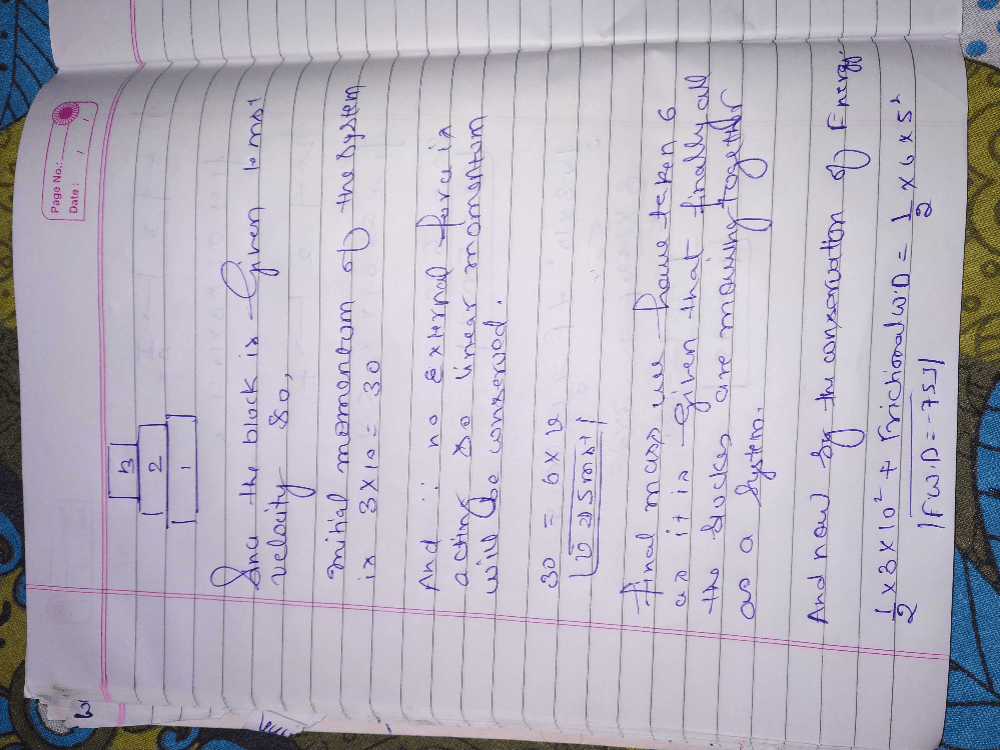 Page No.:
Date: / /
3
2
1
Since the block is Given 10ms-1
velocity so,
initial momentum of the system
is 3×10 = 30
And ∵ no External force is
acting so linear momentum
will be conserved.
30 = 6×v
v = 5ms-1
Final mass we have taken 6
as it is given that finally all
the blocks are moving together
as a system.
And now by the conservation of Energy
1/2 × 3 × 10² + frictional W.D = 1/2 × 6 × 5²
|F W.D = -75J|